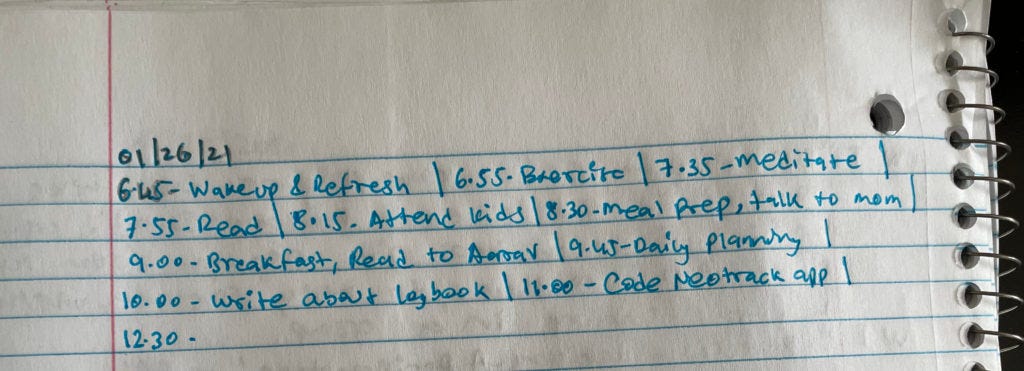 01/26/21
6.45- Wakeup & Refresh | 6.55- Exercise | 7.35-meditate |
7.55-Read | 8.15- Attend kids | 8.30-meal prep, talk to mom |
9.00-Breakfast, Read to Aarav | 9.45-Daily planning |
10.00-write about logbook | 11.00-Code Neotrack app |
12.30-